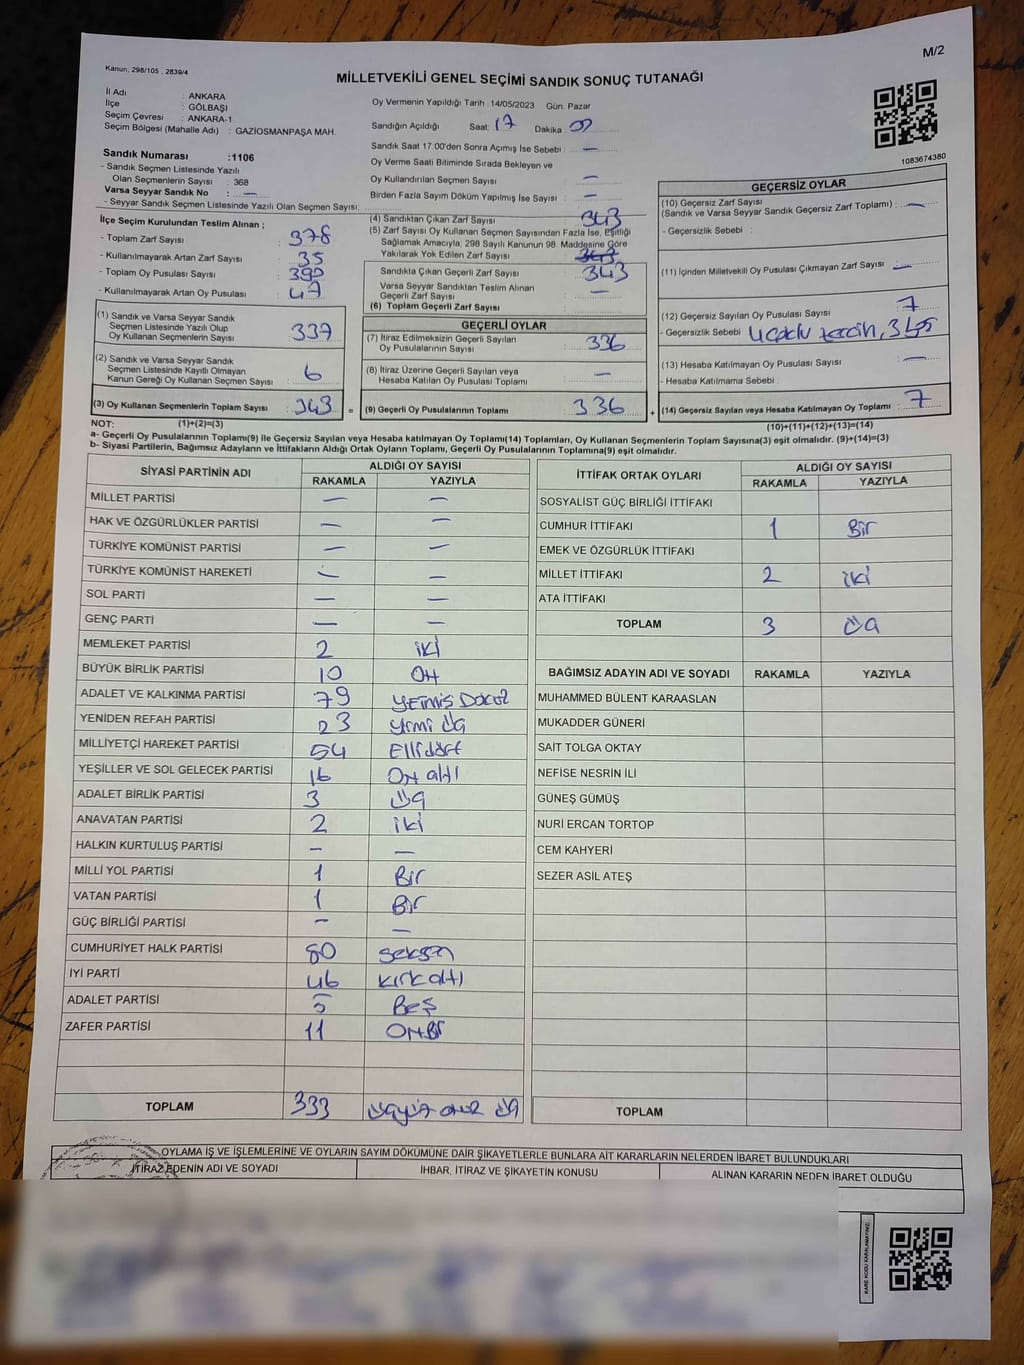 M/2
Kanun: 298/105 , 2839/4
MİLLETVEKİLİ GENEL SEÇİMİ SANDIK SONUÇ TUTANAĞI
İl Adı : ANKARA
İlçe : GÖLBAŞI
Seçim Çevresi : ANKARA-1
Seçim Bölgesi (Mahalle Adı) : GAZİOSMANPAŞA MAH.
Sandık Numarası :1106
- Sandık Seçmen Listesinde Yazılı
Olan Seçmenlerin Sayısı : 368
Varsa Seyyar Sandık No : —
- Seyyar Sandık Seçmen Listesinde Yazılı Olan Seçmen Sayısı:
Oy Vermenin Yapıldığı Tarih :14/05/2023 Gün: Pazar
Sandığın Açıldığı Saat: 17 Dakika:
Sandık Saat 17:00'den Sonra Açımış İse Sebebi : —
Oy Verme Saati Bitiminde Sırada Bekleyen ve
Oy Kullandırılan Seçmen Sayısı : —
Birden Fazla Sayım Döküm Yapılmış İse Sayısı : —
1083674380
İlçe Seçim Kurulundan Teslim Alınan ;
- Toplam Zarf Sayısı : 378
- Kullanılmayarak Artan Zarf Sayısı : 35
- Toplam Oy Pusulası Sayısı : 390
- Kullanılmayarak Artan Oy Pusulası : 47
(1) Sandık ve Varsa Seyyar Sandık
Seçmen Listesinde Yazılı Olup
Oy Kullanan Seçmenlerin Sayısı : 337
(2) Sandık ve Varsa Seyyar Sandık
Seçmen Listesinde Kayıtlı Olmayan
Kanun Gereği Oy Kullanan Seçmen Sayısı : 6
(3) Oy Kullanan Seçmenlerin Toplam Sayısı : 343
(4) Sandıktan Çıkan Zarf Sayısı : 343
(5) Zarf Sayısı Oy Kullanan Seçmen Sayısından Fazla İse, Eşitliği
Sağlamak Amacıyla, 298 Sayılı Kanunun 98. Maddesine Göre
Yakılarak Yok Edilen Zarf Sayısı : 343
Sandıkta Çıkan Geçerli Zarf Sayısı : 343
Varsa Seyyar Sandıktan Teslim Alınan
Geçerli Zarf Sayısı : —
(6) Toplam Geçerli Zarf Sayısı :
GEÇERLİ OYLAR
(7) İtiraz Edilmeksizin Geçerli Sayılan
Oy Pusulalarının Sayısı : 336
(8) İtiraz Üzerine Geçerli Sayılan veya
Hesaba Katılan Oy Pusulası Toplamı : —
= (9) Geçerli Oy Pusulalarının Toplamı : 336 +
GEÇERSİZ OYLAR
(10) Geçersiz Zarf Sayısı
(Sandık ve Varsa Seyyar Sandık Geçersiz Zarf Toplamı) : —
- Geçersizlik Sebebi :
(11) İçinden Milletvekili Oy Pusulası Çıkmayan Zarf Sayısı : —
(12) Geçersiz Sayılan Oy Pusulası Sayısı : 7
- Geçersizlik Sebebi : tercih,
(13) Hesaba Katılmayan Oy Pusulası Sayısı : —
- Hesaba Katılmama Sebebi :
(14) Geçersiz Sayılan veya Hesaba Katılmayan Oy Toplamı : 7
NOT: (1)+(2)=(3) (10)+(11)+(12)+(13)=(14)
a- Geçerli Oy Pusulalarının Toplamı(9) ile Geçersiz Sayılan veya Hesaba katılmayan Oy Toplamı(14) Toplamları, Oy Kullanan Seçmenlerin Toplam Sayısına(3) eşit olmalıdır. (9)+(14)=(3)
b- Siyasi Partilerin, Bağımsız Adayların ve İttifakların Aldığı Ortak Oyların Toplamı, Geçerli Oy Pusulalarının Toplamına(9) eşit olmalıdır.
SİYASİ PARTİNİN ADI ALDIĞI OY SAYISI
RAKAMLA YAZIYLA
MİLLET PARTİSİ — —
HAK VE ÖZGÜRLÜKLER PARTİSİ — —
TÜRKİYE KOMÜNİST PARTİSİ — —
TÜRKİYE KOMÜNİST HAREKETİ — —
SOL PARTİ — —
GENÇ PARTİ — —
MEMLEKET PARTİSİ 2 iki
BÜYÜK BİRLİK PARTİSİ 10 ON
ADALET VE KALKINMA PARTİSİ 79 YETMİŞ DOKUZ
YENİDEN REFAH PARTİSİ 23 yirmi üç
MİLLİYETÇİ HAREKET PARTİSİ 54 Ellidört
YEŞİLLER VE SOL GELECEK PARTİSİ 16 On altı
ADALET BİRLİK PARTİSİ 3 üç
ANAVATAN PARTİSİ 2 iki
HALKIN KURTULUŞ PARTİSİ — —
MİLLİ YOL PARTİSİ 1 Bir
VATAN PARTİSİ 1 Bir
GÜÇ BİRLİĞİ PARTİSİ — —
CUMHURİYET HALK PARTİSİ 80 seksen
İYİ PARTİ 46 kırk altı
ADALET PARTİSİ 5 Beş
ZAFER PARTİSİ 11 ONBİR
TOPLAM 333 üçyüz otuz üç
İTTİFAK ORTAK OYLARI ALDIĞI OY SAYISI
RAKAMLA YAZIYLA
SOSYALİST GÜÇ BİRLİĞİ İTTİFAKI
CUMHUR İTTİFAKI 1 Bir
EMEK VE ÖZGÜRLÜK İTTİFAKI
MİLLET İTTİFAKI 2 iki
ATA İTTİFAKI
TOPLAM 3 üç
BAĞIMSIZ ADAYIN ADI VE SOYADI RAKAMLA YAZIYLA
MUHAMMED BÜLENT KARAASLAN
MUKADDER GÜNERİ
SAİT TOLGA OKTAY
NEFİSE NESRİN İLİ
GÜNEŞ GÜMÜŞ
NURİ ERCAN TORTOP
CEM KAHYERİ
SEZER ASİL ATEŞ
TOPLAM
OYLAMA İŞ VE İŞLEMLERİNE VE OYLARIN SAYIM DÖKÜMÜNE DAİR ŞİKAYETLERLE BUNLARA AİT KARARLARIN NELERDEN İBARET BULUNDUKLARI
İTİRAZ EDENİN ADI VE SOYADI İHBAR, İTİRAZ VE ŞİKAYETİN KONUSU ALINAN KARARIN NEDEN İBARET OLDUĞU
KARE KODU KARALAMAYINIZ.